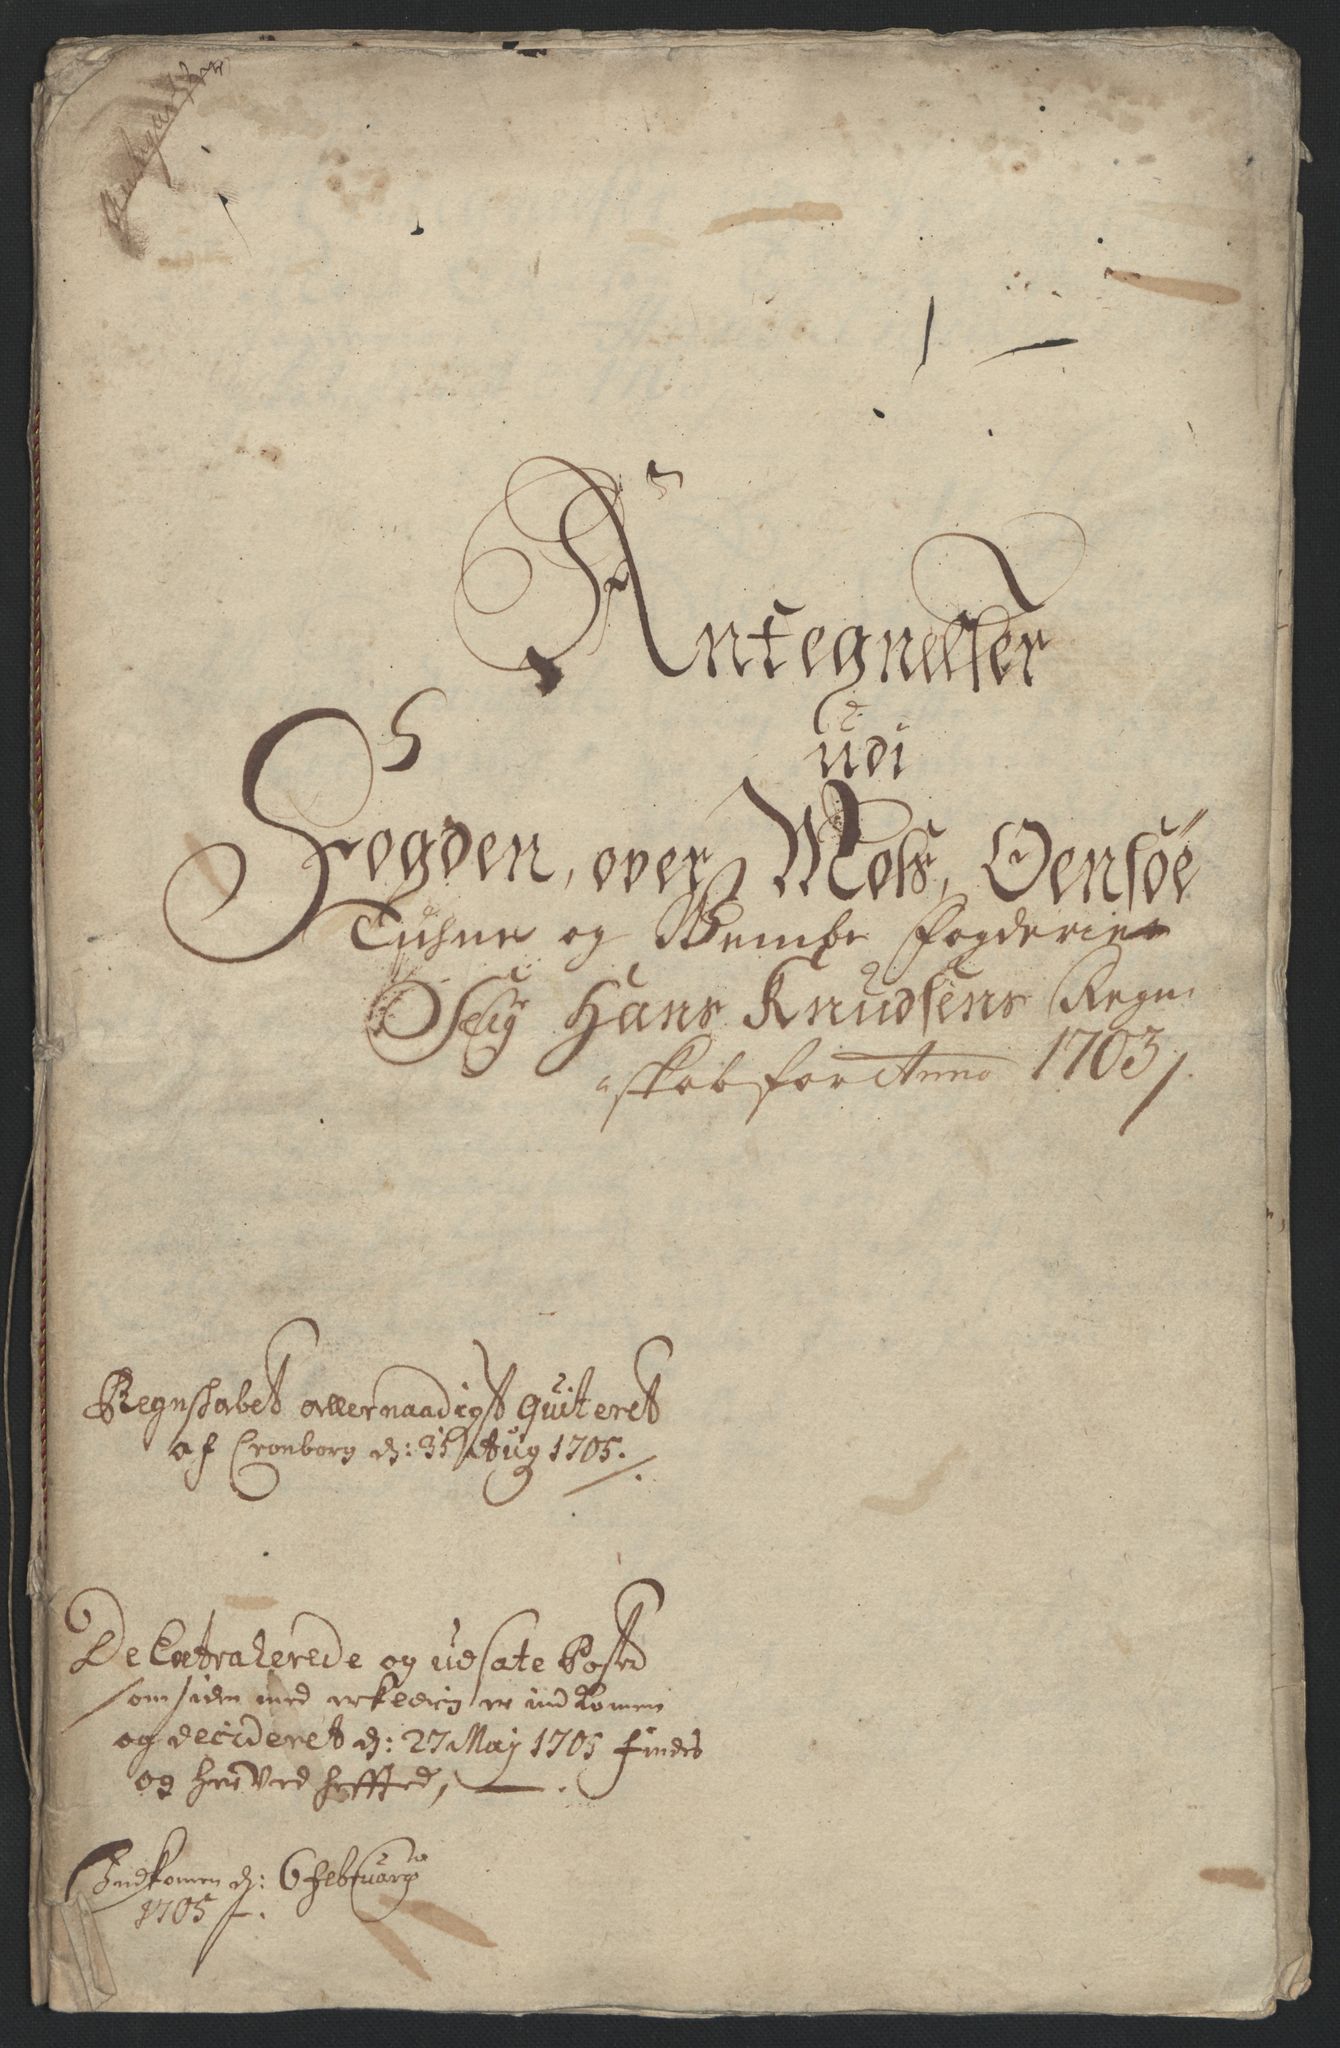 Antegnelser
udi
Fogden, over Moss, Oensöe
Tuhne og Wembe fogderier
Seig Hans Knudsens Regn:
skab for Anno 1703
Regnskabet allernaadigst quiteret
af Cronborg d: 31 Aug 1705.
De Extraherede og udsate Poster
som siden med erklering er ind komen
og decideret d: 27 Maj 1705 findes
og herved heffted,
Indkomen d: 6 februarij
1705